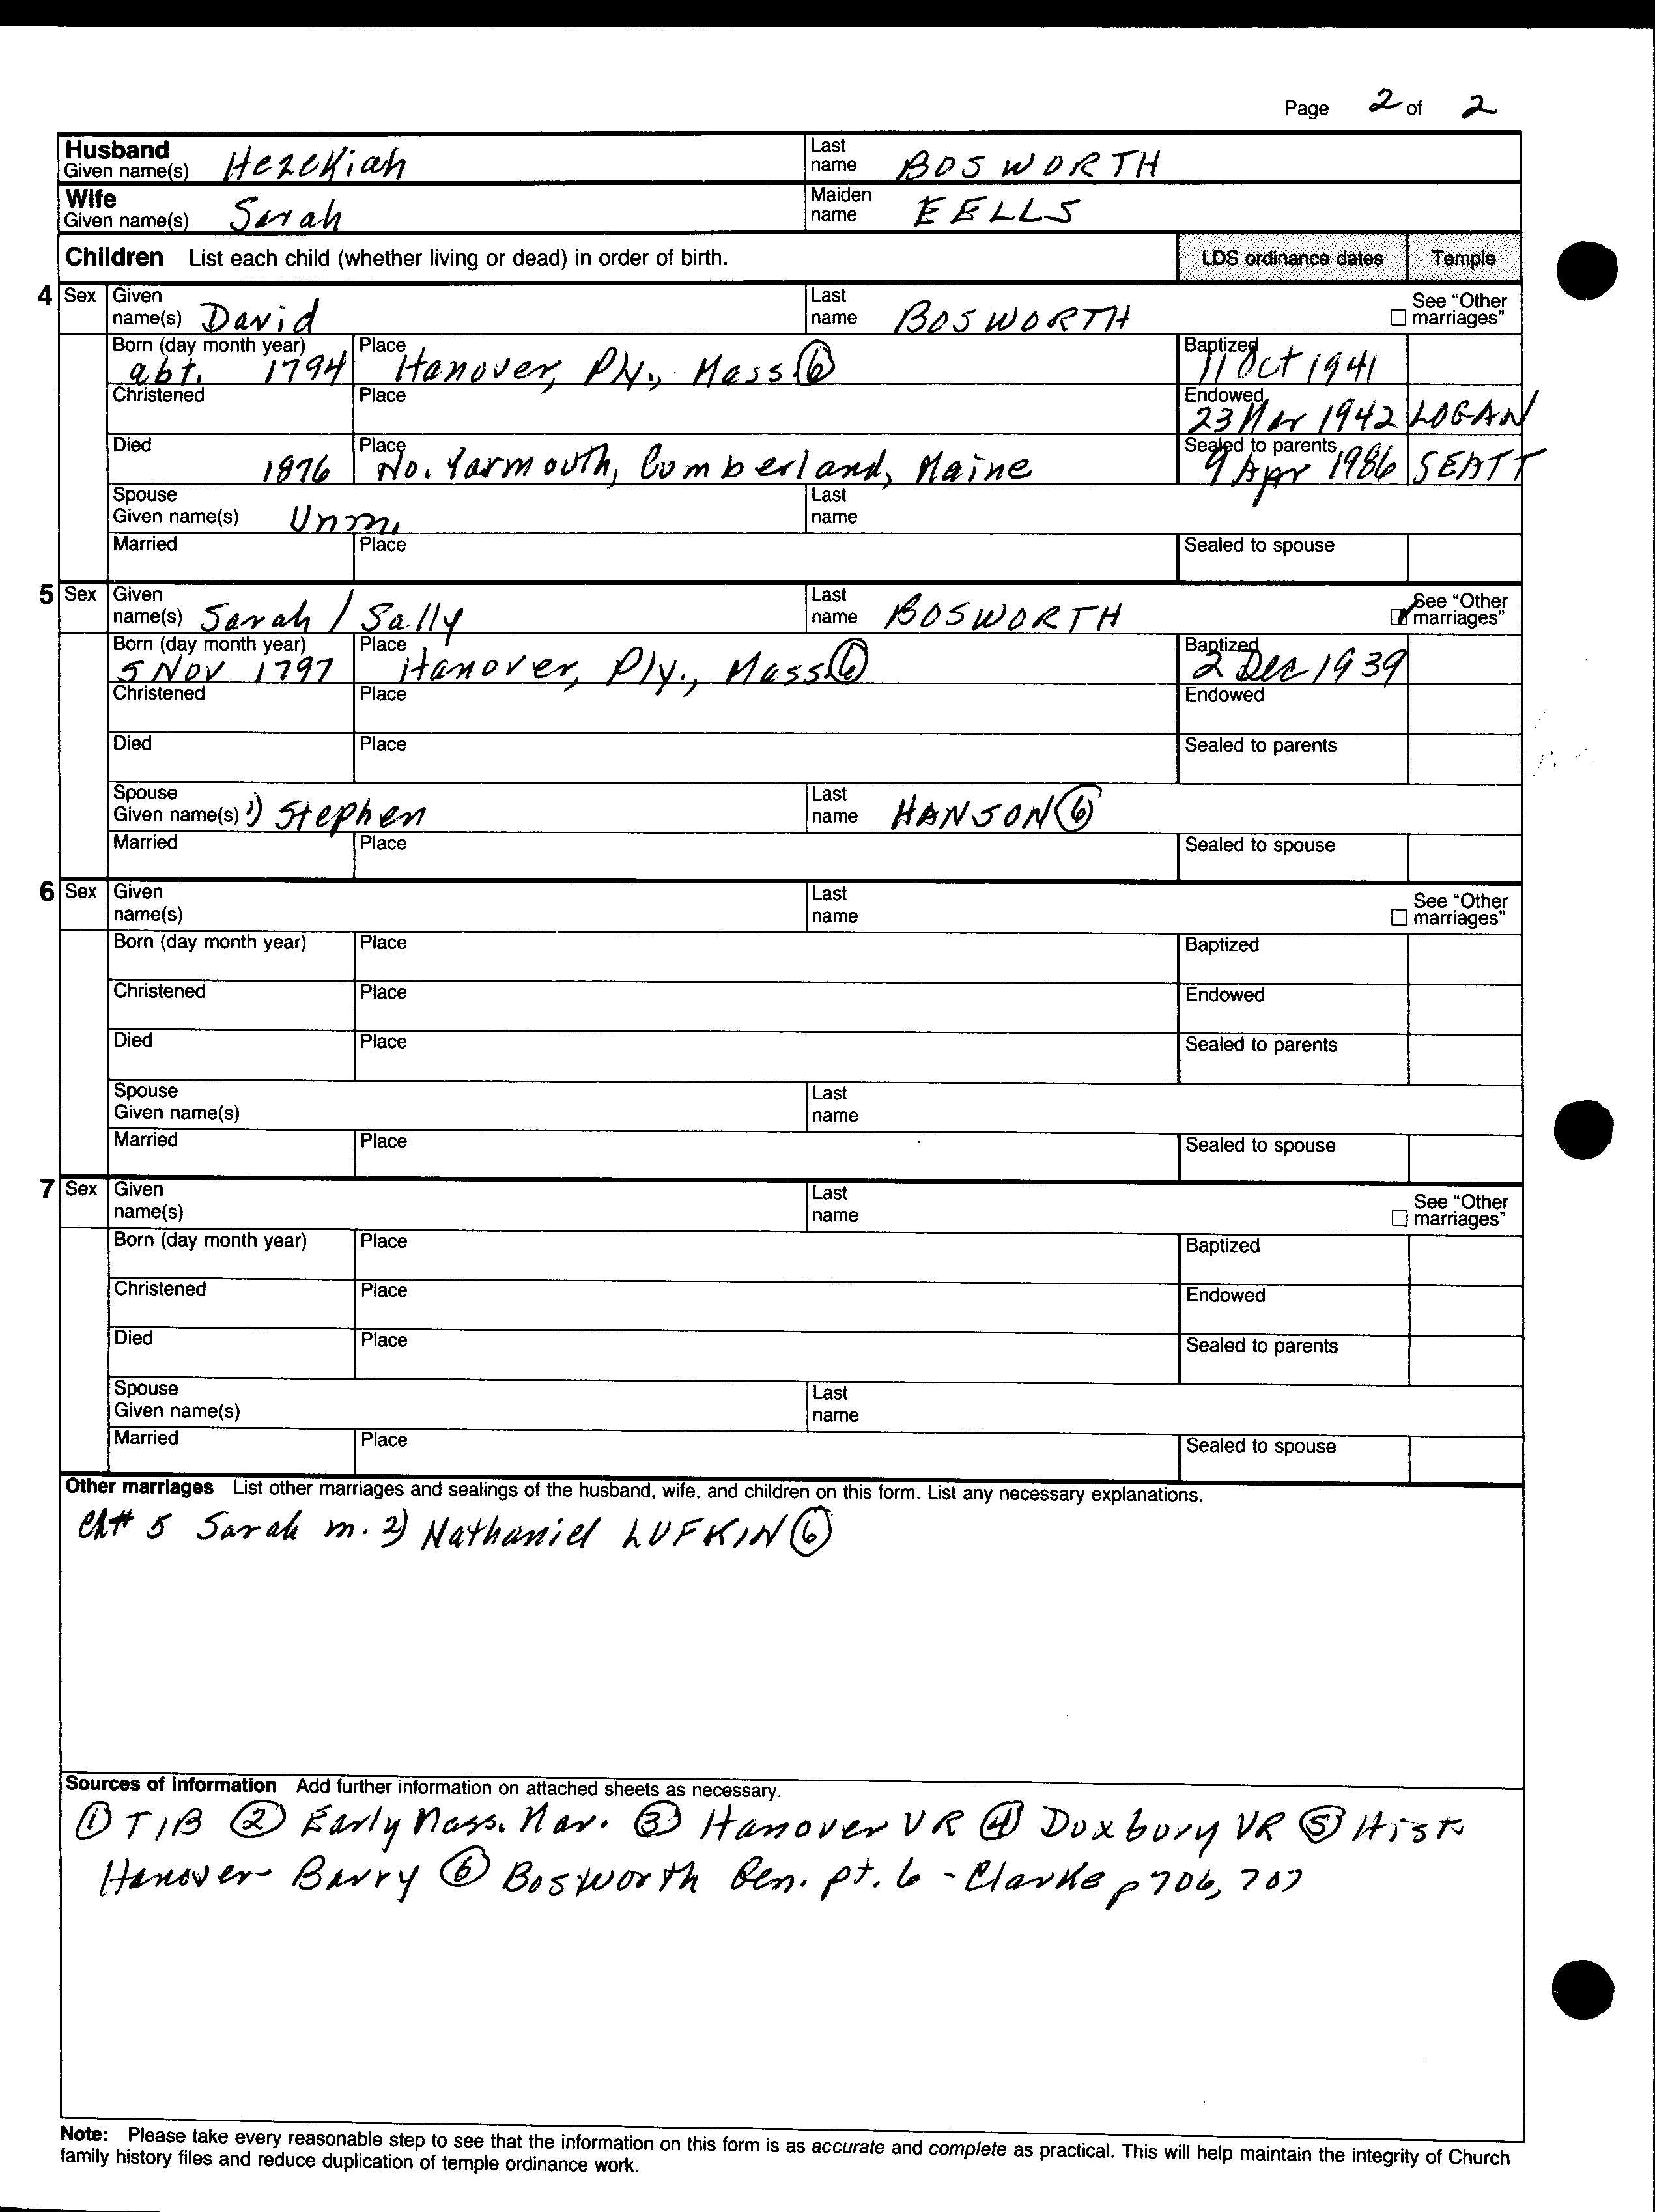 Page 2 of 2
Husband Given name(s) Hezekiah Last name BOSWORTH
Wife Given name(s) Sarah Maiden name EELLS
Children List each child (whether living or dead) in order of birth. LDS ordinance dates Temple
4 Sex Given name(s) David Last name BOSWORTH See "Other marriages"
Born (day month year) abt. 1794 Place Hanover, Ply., Mass. ⑥ Baptized 11 Oct 1941
Christened Place Endowed 23 Mar 1942 LOGAN
Died 1876 Place No. Yarmouth, Cumberland, Maine Sealed to parents 9 Apr 1986 SEATT
Spouse Given name(s) Unm. Last name
Married Place Sealed to spouse
5 Sex Given name(s) Sarah / Sally Last name BOSWORTH See "Other marriages"
Born (day month year) 5 Nov 1797 Place Hanover, Ply., Mass. ⑥ Baptized 2 Dec 1939
Christened Place Endowed
Died Place Sealed to parents
Spouse Given name(s) 1) Stephen Last name HANSON ⑥
Married Place Sealed to spouse
6 Sex Given name(s) Last name See "Other marriages"
Born (day month year) Place Baptized
Christened Place Endowed
Died Place Sealed to parents
Spouse Given name(s) Last name
Married Place Sealed to spouse
7 Sex Given name(s) Last name See "Other marriages"
Born (day month year) Place Baptized
Christened Place Endowed
Died Place Sealed to parents
Spouse Given name(s) Last name
Married Place Sealed to spouse
Other marriages List other marriages and sealings of the husband, wife, and children on this form. List any necessary explanations.
Ch# 5 Sarah m. 2) Nathaniel LUFKIN ⑥
Sources of information Add further information on attached sheets as necessary.
① TIB ② Early Mass. Mar. ③ Hanover VR ④ Duxbury VR ⑤ Hist
Hanover Barry ⑥ Bosworth Gen. pt. 6 - Clarke p 706, 707
Note: Please take every reasonable step to see that the information on this form is as accurate and complete as practical. This will help maintain the integrity of Church
family history files and reduce duplication of temple ordinance work.